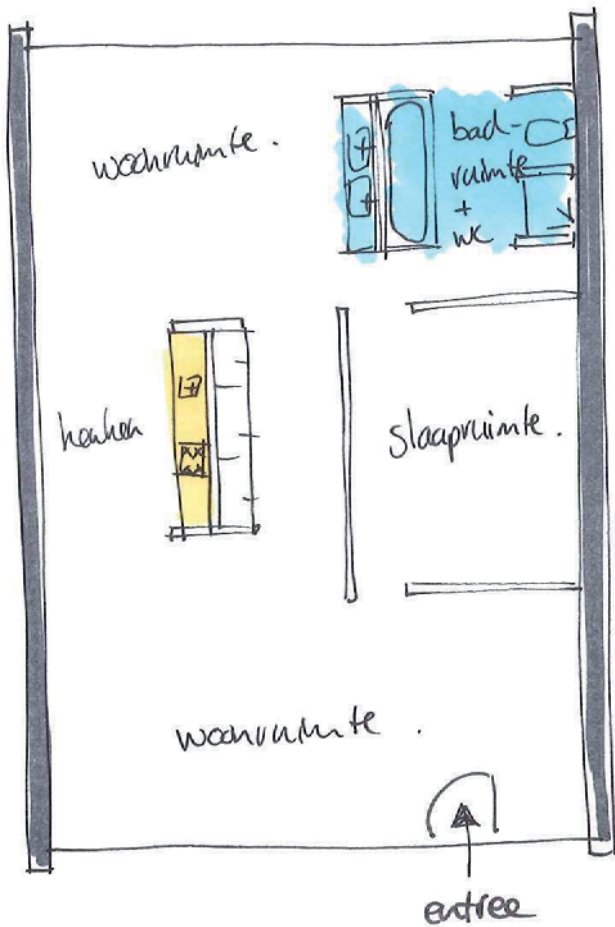 woonruimte.
bad-
ruimte
+
wc
keuken
slaapruimte.
woonruimte.
entree